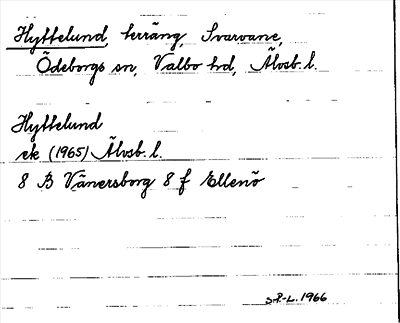 Hyttelund, terräng, Svarvane,
Ödeborgs sn, Valbo hd, Älvsb. l.
Hyttelund
ek (1965) Älvsb. l.
8 B Vänersborg 8 f Ellenö
S.P.-L. 1966